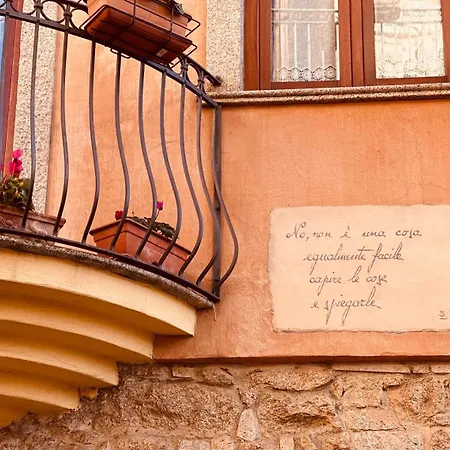 No, non è una cosa
egualmente facile
capire le cose
e spiegarle